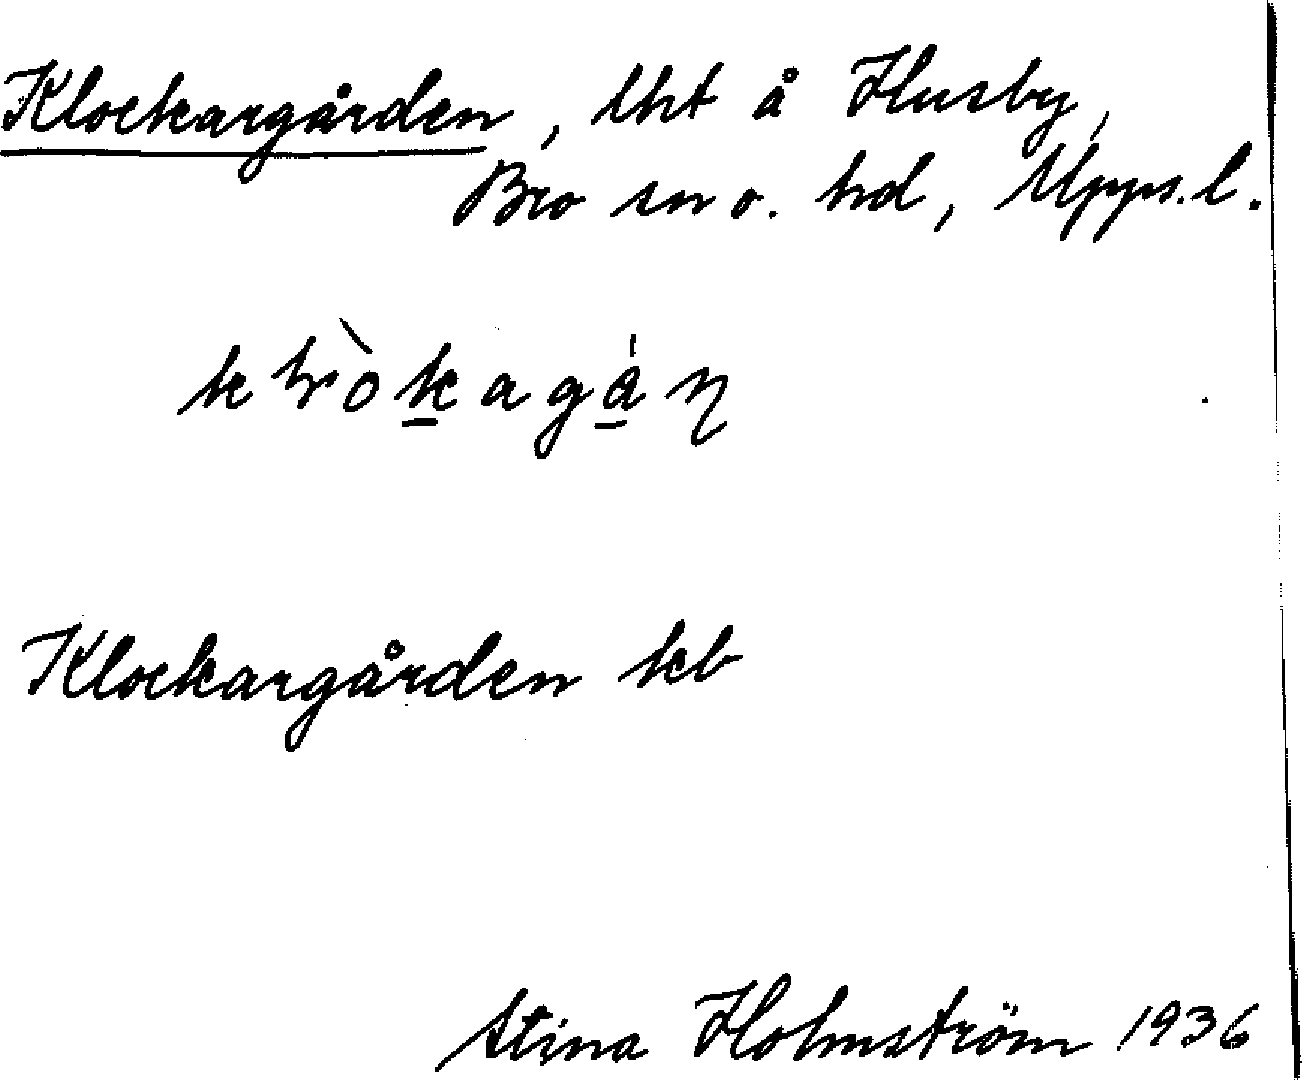 Klockargården, lht å Husby,
Bro sn o. hd, Upps.l.
Klockargården kb
Stina Holmström 1936